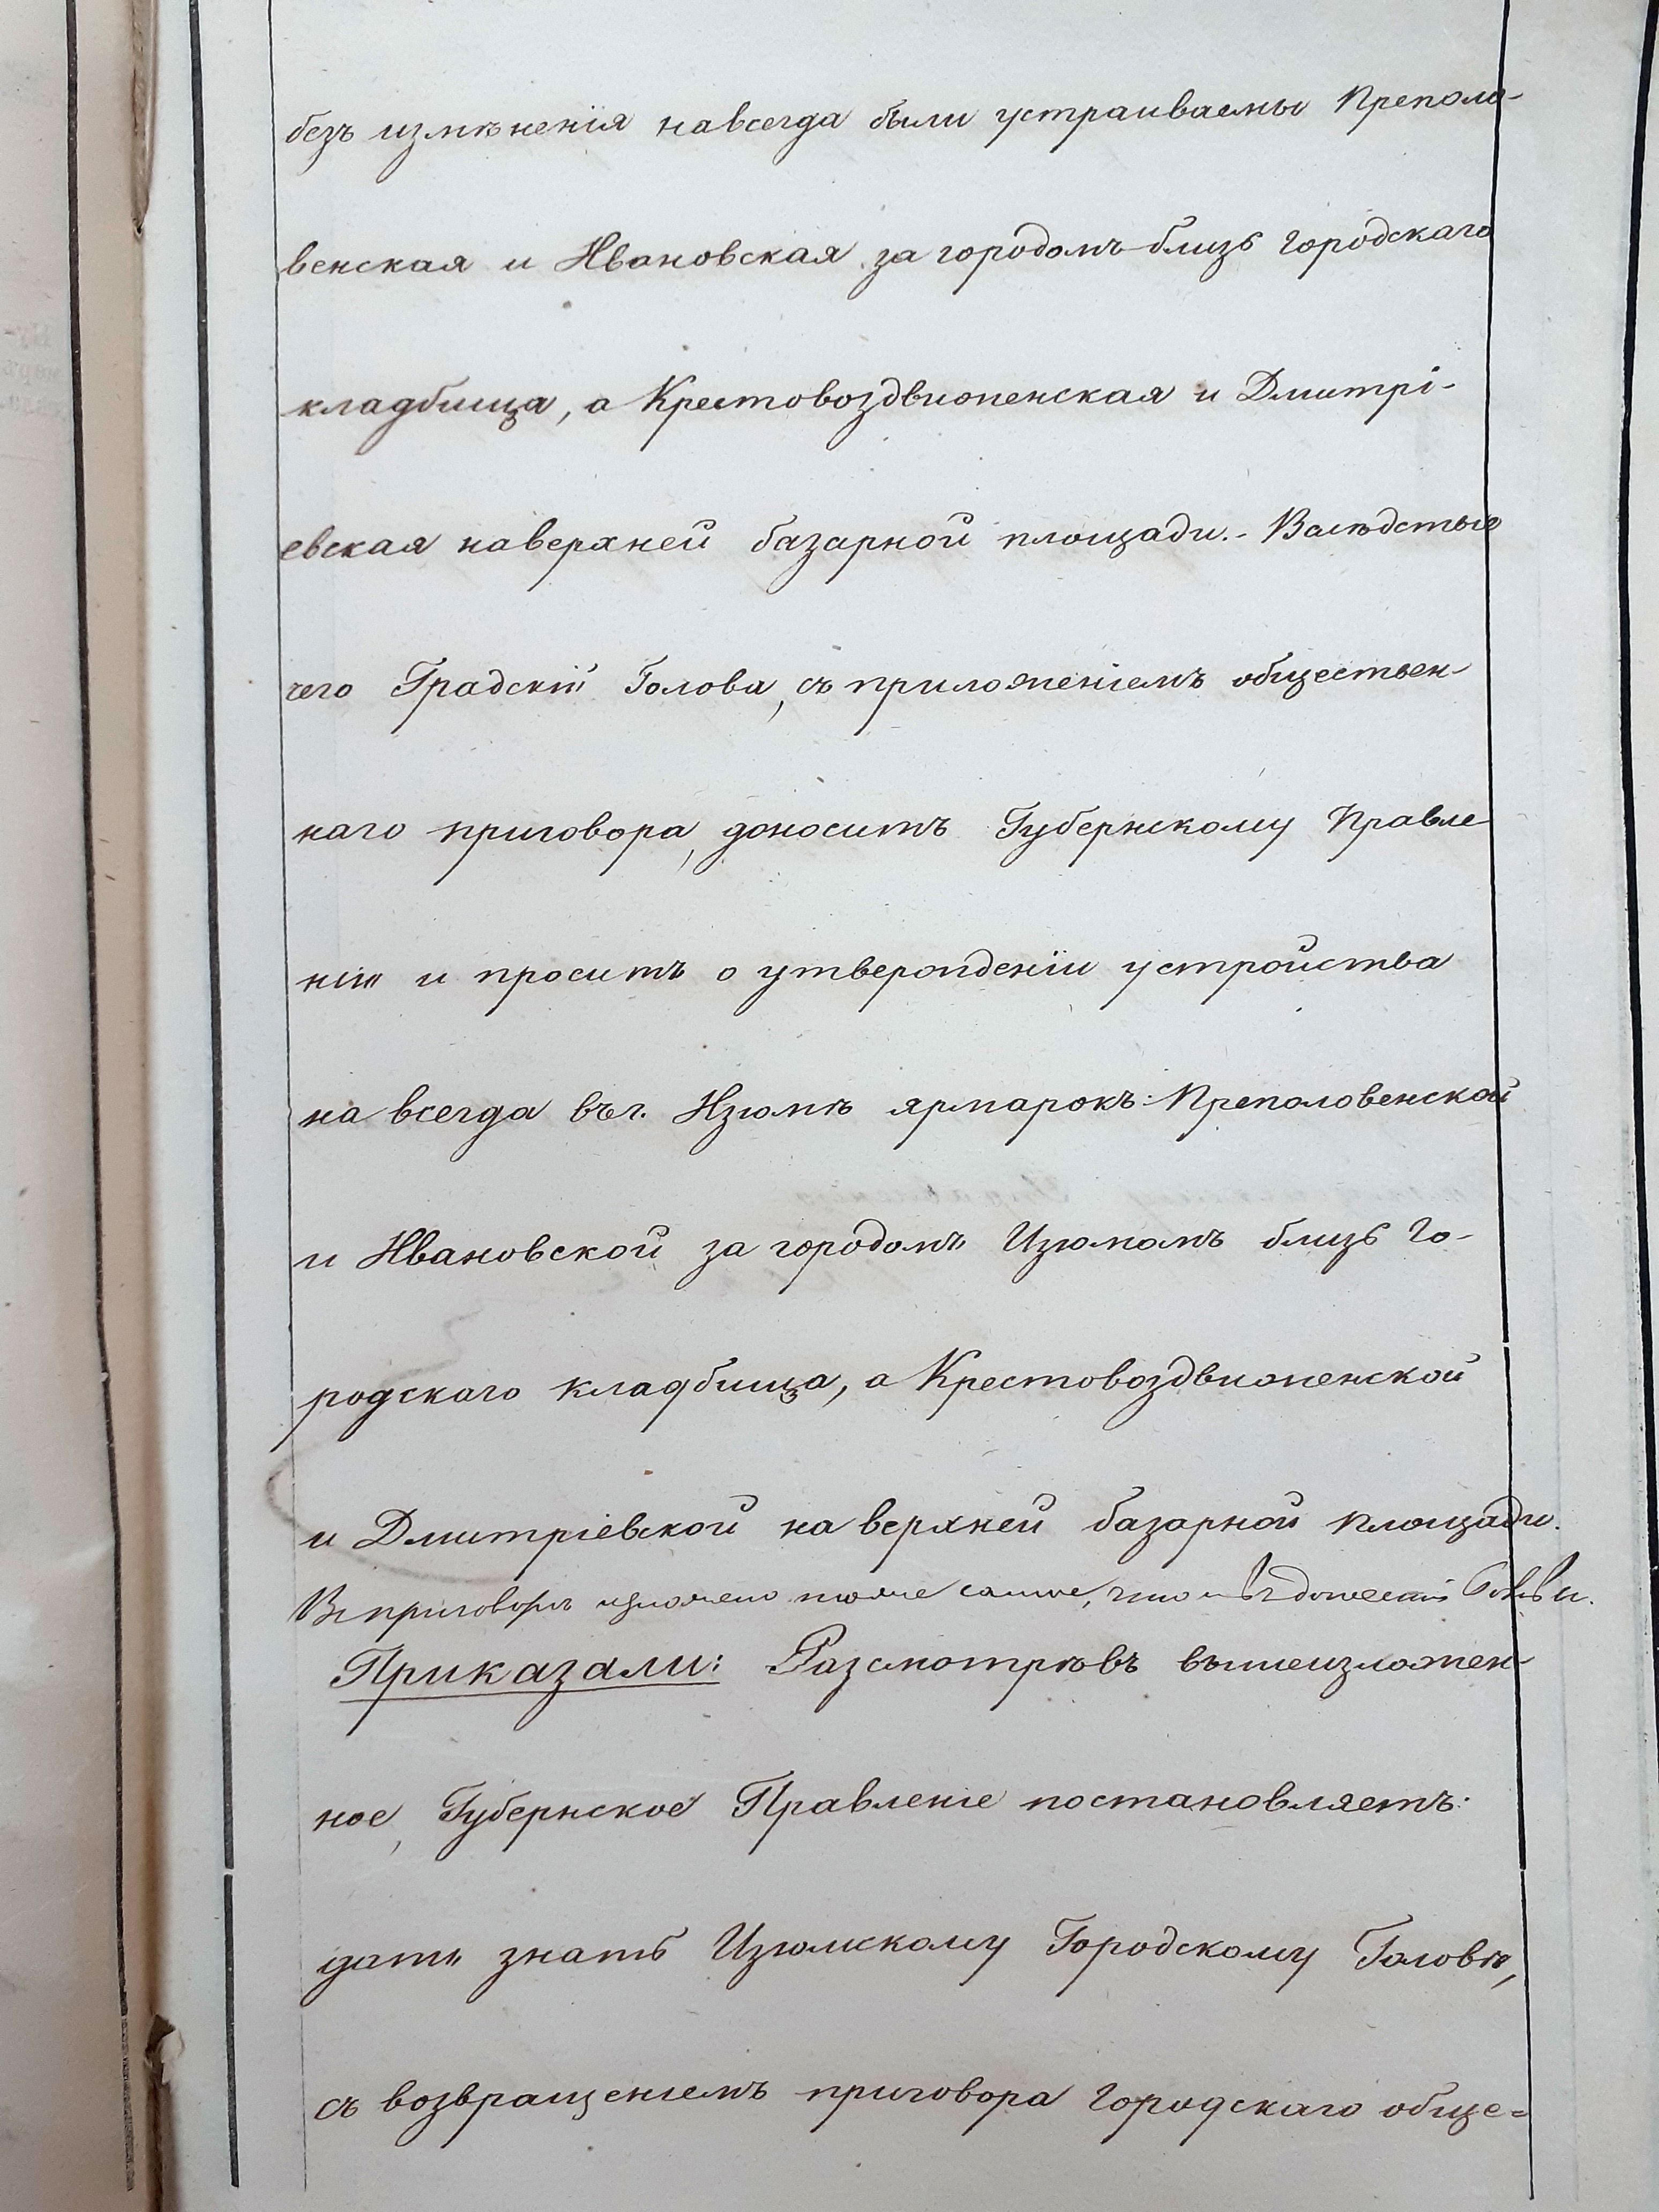 безъ измѣненія навсегда были устраиваемы Преполо-
венская и Ивановская за городомъ близь городскаго
кладбища, а Крестовоздвиженская и Дмитрі-
евская наверхней базарной площади.- Вслѣдствіе
чего Градскій Голова, съ приложеніемъ обществен-
наго приговора, доноситъ Губернскому Правле
нію и проситъ о утвержденіи устройства
на всегда въ г. Изюмѣ ярмарокъ: Преполовенской
и Ивановской за городомъ Изюмомъ близь го-
родскаго кладбища, а Крестовоздвиженской
и Дмитріевской на верхней базарной площади.
Въ приговорѣ изложено тоже самое, что и въ донесеніи
Приказали: Разсмотрѣвъ вышеизложен-
ное, Губернское Правленіе постановляетъ:
дать знать Изюмскому Городскому Головѣ,
съ возвращеніемъ приговора городскаго обще=